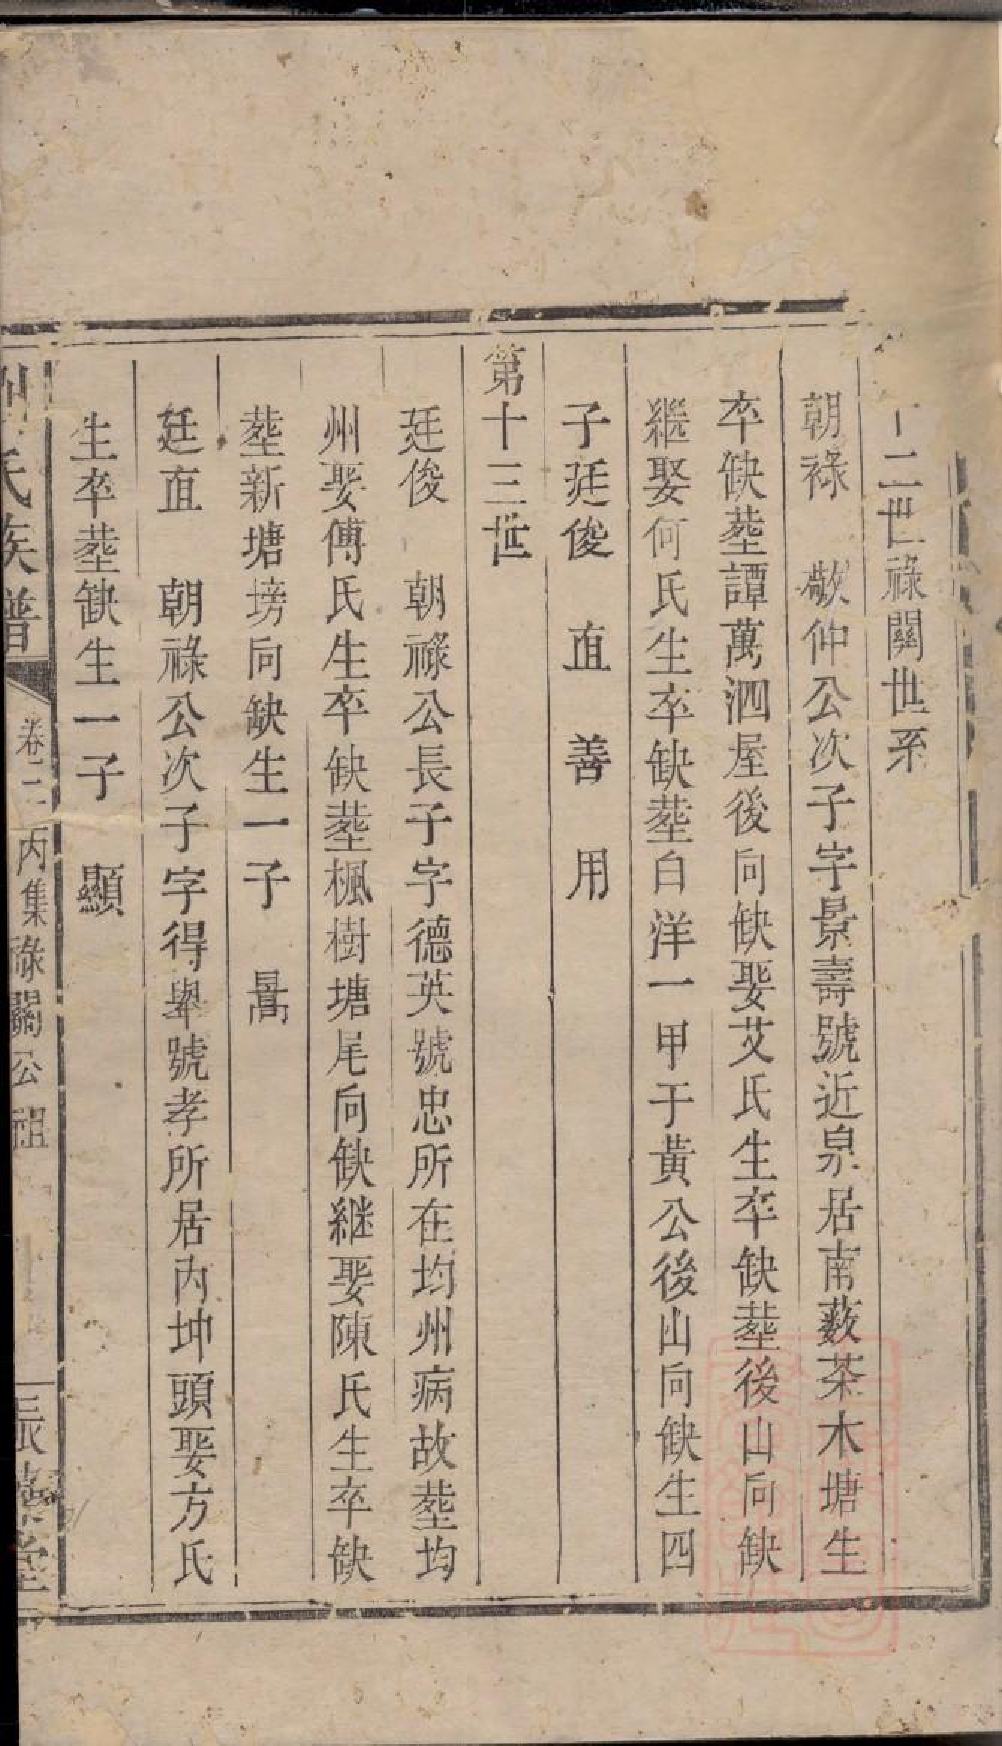 十二世祿閣世系
朝祿 敬仲公次子字景壽號近泉居南薮茶木塘生
卒缺塟譚萬泗屋後向缺娶艾氏生卒缺塟後山向缺
継娶何氏生卒缺塟白洋一甲于黃公後山向缺生四
子廷俊 直 善 用
第十三世
廷俊 朝祿公長子字德英號忠所在均州病故塟均
州娶傅氏生卒缺塟楓樹塘尾向缺継娶陳氏生卒缺
塟新塘塝向缺生一子 暠
廷直 朝祿公次子字得舉號孝所居內坤頭娶方氏
生卒塟缺生一子 顯
氏族譜 卷二 丙集祿閣公祖 堂